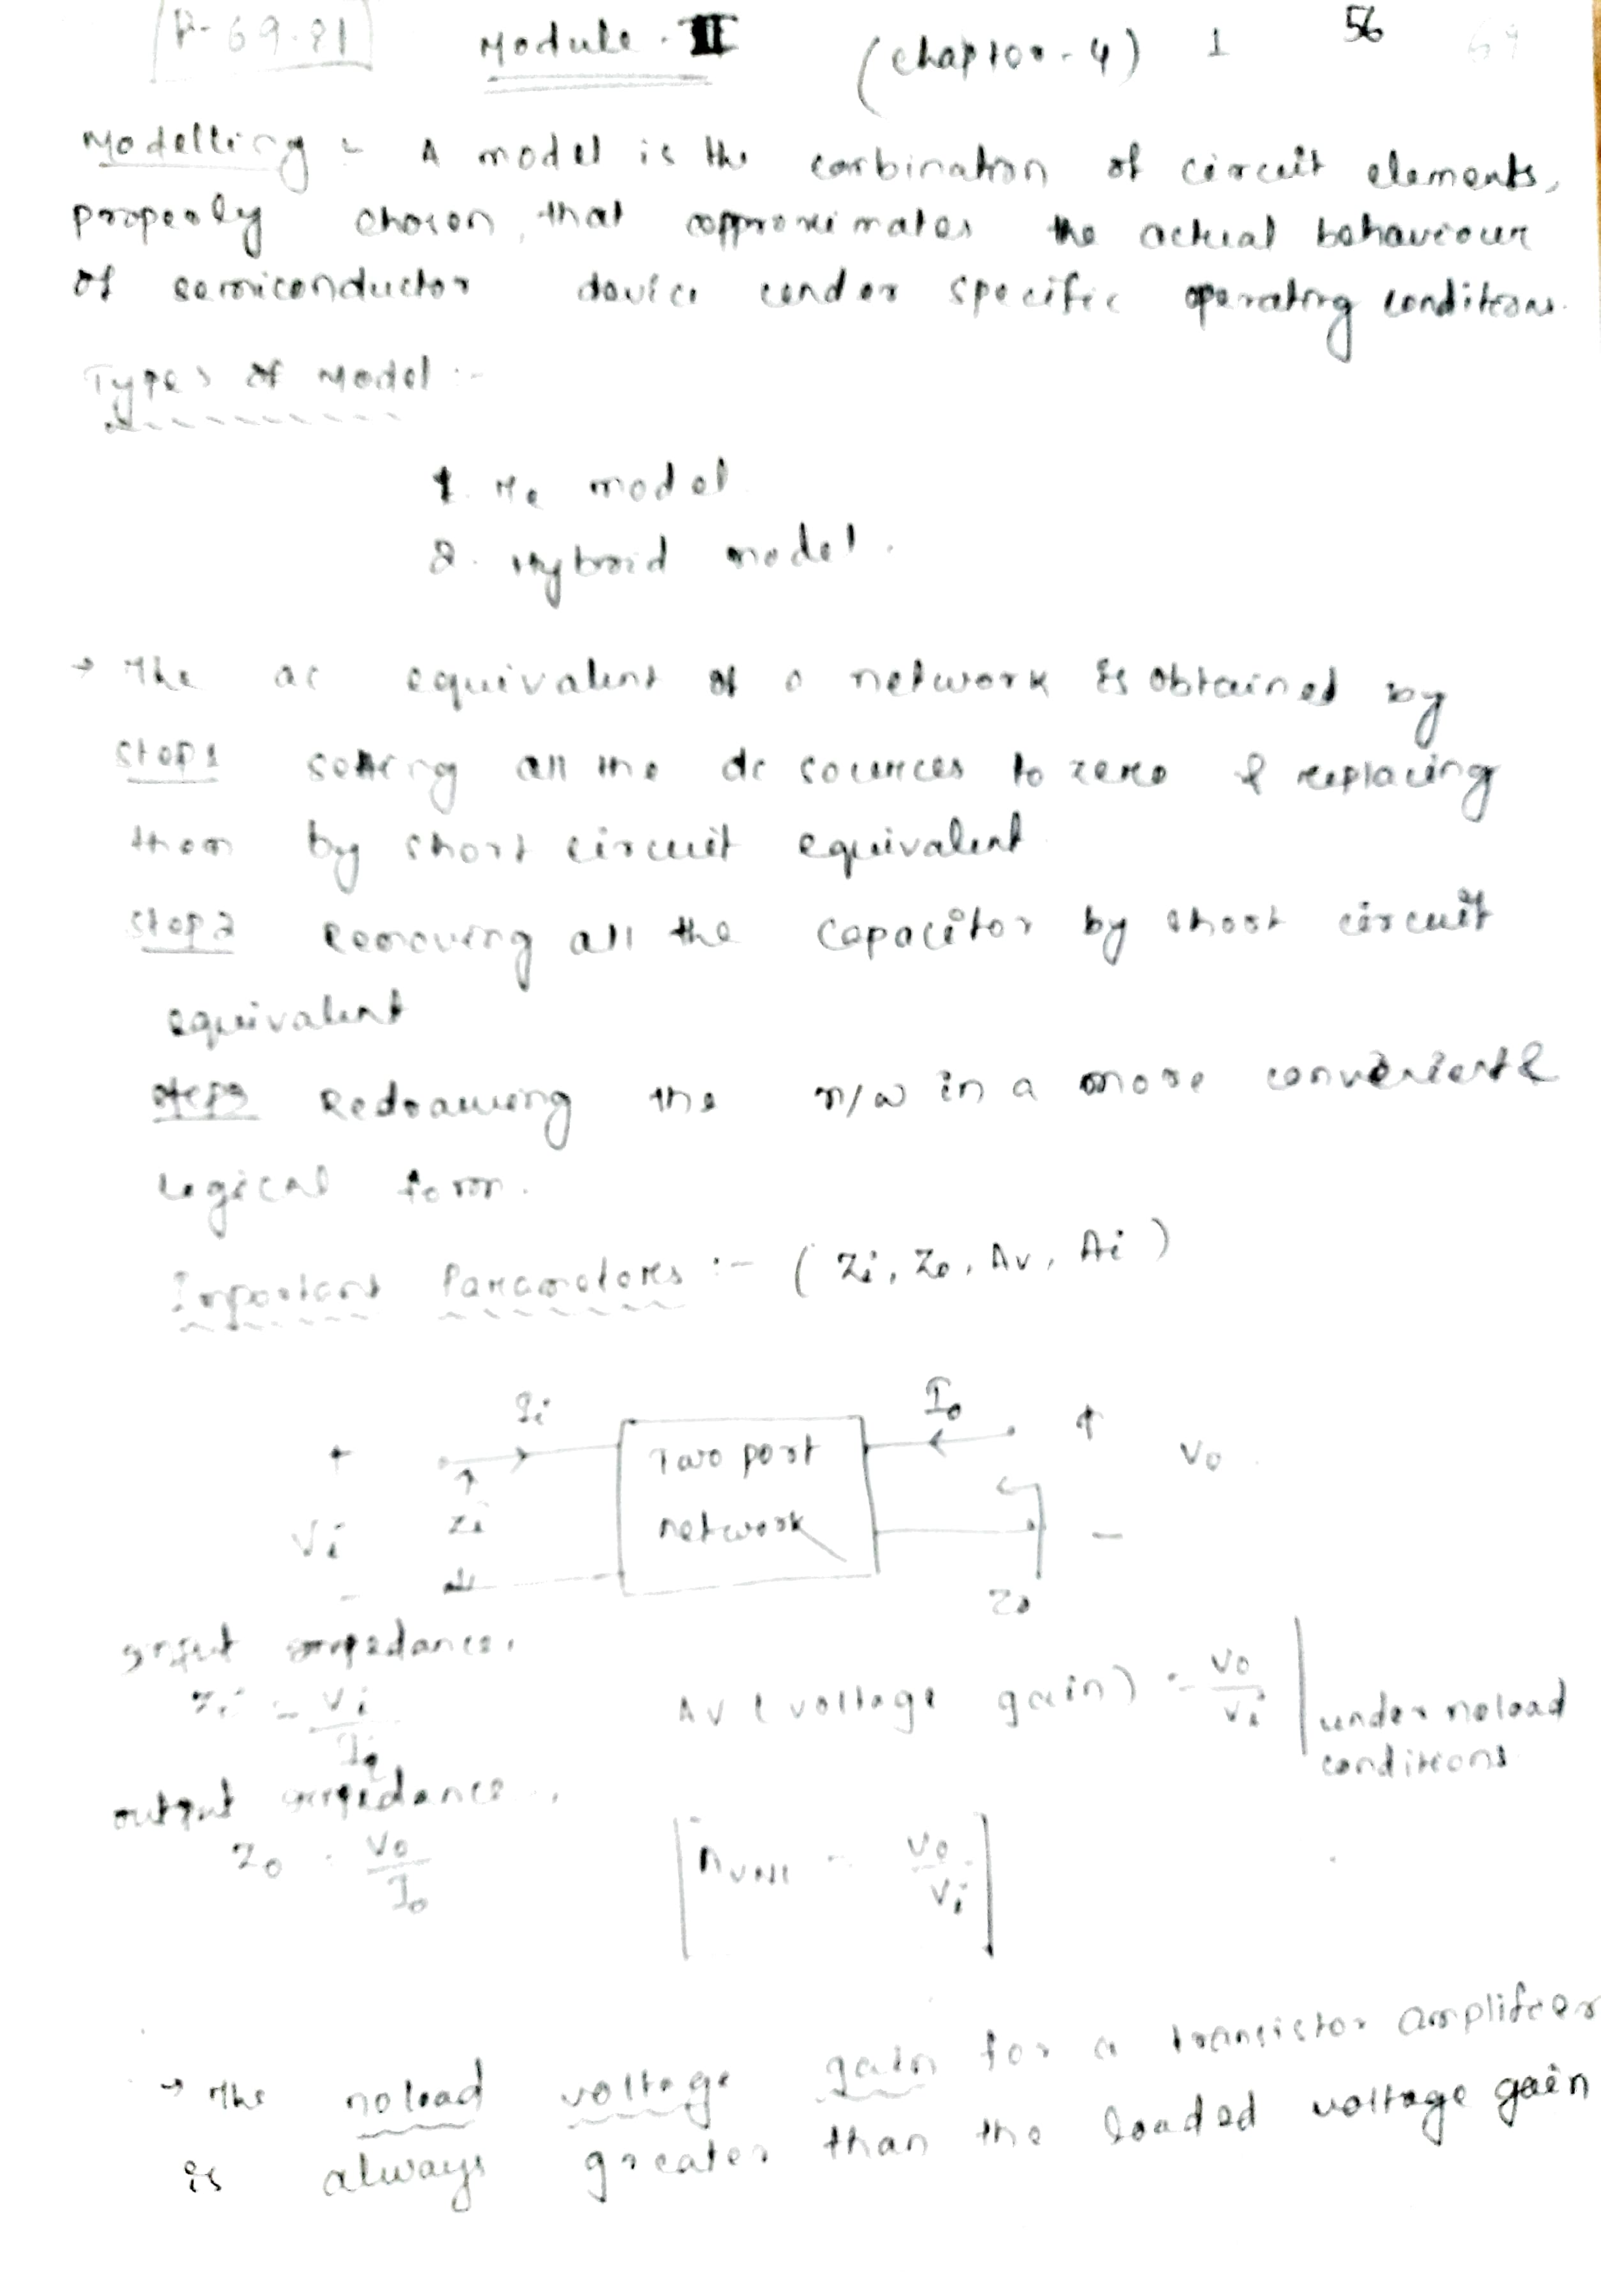 P-69-81 Module-II (chapter-4) 1 56 69
Modelling - A model is the combination of circuit elements,
properly chosen, that approximates the actual behaviour
of semiconductor device under specific operating conditions.
Types of Model :-
1. re model
2. Hybrid model.
→ The ac equivalent of a network is obtained by
Step1 setting all the dc sources to zero & replacing
them by short circuit equivalent
Step2 Removing all the capacitor by short circuit
equivalent
Step3 Redrawing the n/w in a more convenient &
Logical form.
Important Parameters :- (Zi, Zo, Av, Ai)
Ii Io
+ Two port + Vo
Vi Zi network -
- Zo
Input impedance,
Zi = Vi/Ii Av (voltage gain) = Vo/Vi | under noload
conditions
output impedance,
Zo = Vo/Io AvNL = Vo/Vi
→ The noload voltage gain for a transistor amplifier
is always greater than the loaded voltage gain